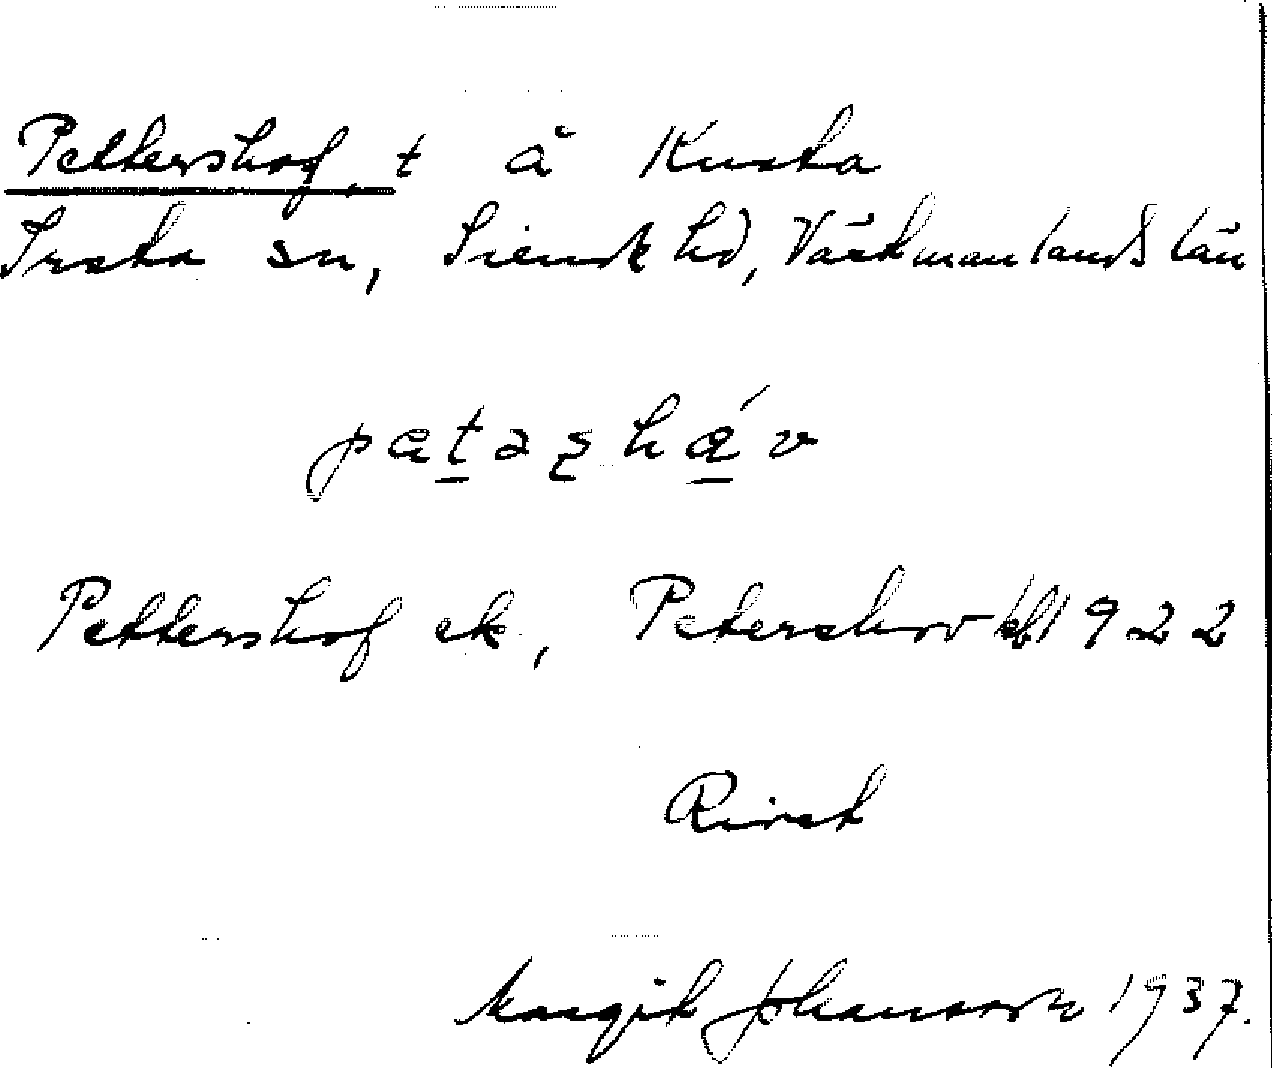 Pettershof, t å Kusta
Irsta sn, Siende hd, Västmanlands län
patəʂháv
Pettershof ek, Petershov kbf 1922
Rivet
Margit Johansson 1937.